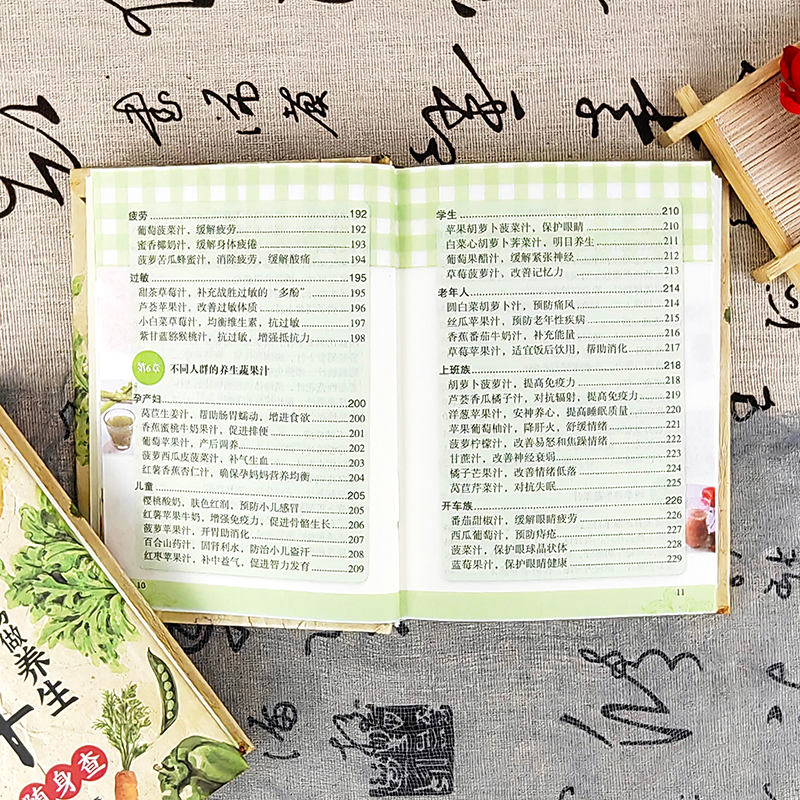 疲劳 192
葡萄菠菜汁，缓解疲劳 192
蜜香椰奶汁，缓解身体疲倦 193
菠萝苦瓜蜂蜜汁，消除疲劳，缓解酸痛 194
过敏 195
甜茶草莓汁，补充战胜过敏的“多酚” 195
芦荟苹果汁，改善过敏体质 196
小白菜草莓汁，均衡维生素，抗过敏 197
紫甘蓝猕猴桃汁，抗过敏，增强抵抗力 198
第6章 不同人群的养生蔬果汁
孕产妇 200
莴苣生姜汁，帮助肠胃蠕动，增进食欲 200
香蕉蜜桃牛奶果汁，促进排便 201
葡萄苹果汁，产后调养 202
菠萝西瓜皮菠菜汁，补气生血 203
红薯香蕉杏仁汁，确保孕妈妈营养均衡 204
儿童 205
樱桃酸奶，肤色红润，预防小儿感冒 205
红薯苹果牛奶，增强免疫力，促进骨骼生长 206
菠萝苹果汁，开胃助消化 207
百合山药汁，固肾利水，防治小儿盗汗 208
红枣苹果汁，补中益气，促进智力发育 209
10
学生 210
苹果胡萝卜菠菜汁，保护眼睛 210
白菜心胡萝卜荠菜汁，明目养生 211
葡萄果醋汁，缓解紧张神经 212
草莓菠萝汁，改善记忆力 213
老年人 214
圆白菜胡萝卜汁，预防痛风 214
丝瓜苹果汁，预防老年性疾病 215
香蕉番茄牛奶汁，补充能量 216
草莓苹果汁，适宜饭后饮用，帮助消化 217
上班族 218
胡萝卜菠萝汁，提高免疫力 218
芦荟香瓜橘子汁，对抗辐射，提高免疫力 219
洋葱苹果汁，安神养心，提高睡眠质量 220
苹果葡萄柚汁，降肝火，舒缓情绪 221
菠萝柠檬汁，改善易怒和焦躁情绪 222
甘蔗汁，改善神经衰弱 223
橘子芒果汁，改善情绪低落 224
莴苣芹菜汁，对抗失眠 225
开车族 226
番茄甜椒汁，缓解眼睛疲劳 226
西瓜葡萄汁，预防痔疮 227
菠菜汁，保护眼球晶状体 228
蓝莓果汁，保护眼睛健康 229
11
做养生
随身查